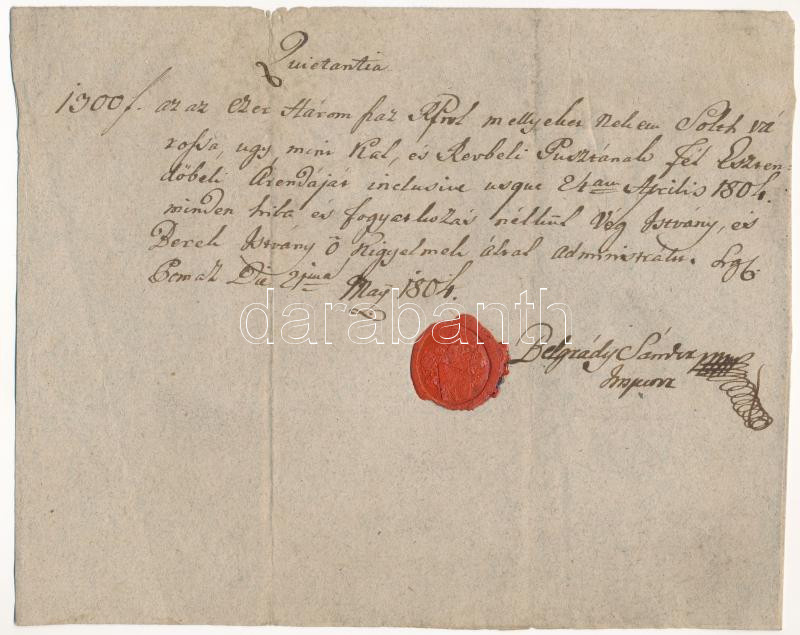 Quietantia
1300 f. az az Ezer Három száz Rfrol mellyeket nekem Solth vá
rossa, ugy mint Kal, és Révbeli Pusztának fél Eszten=
döbeli Árendáját inclusive usque 24am Aprilis 1804.
minden hiba és fogyatkozás nélkül Vég Istvany, és
Berek Istvány ö Kigyelmek által administralt.
Pomaz Die May 1804.
darabanth
Belgrády Sándor